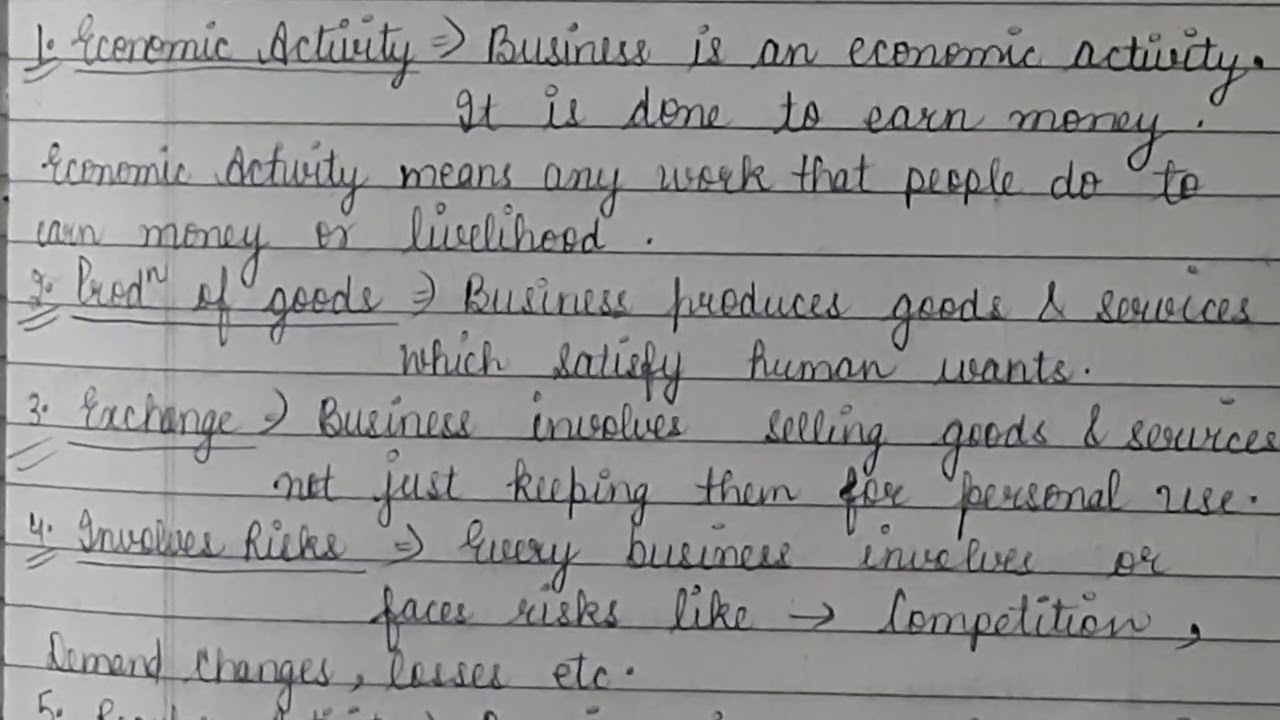 1. Economic Activity ⇒ Business is an economic activity.
It is done to earn money.
Economic Activity means any work that people do to
earn money or livelihood.
2. Prodⁿ of goods ⇒ Business produces goods & services
which satisfy human wants.
3. Exchange ⇒ Business involves selling goods & services
not just keeping them for personal use.
4. Involves Risks ⇒ Every business involves or
faces risks like → Competition,
Demand changes, losses etc.
5.